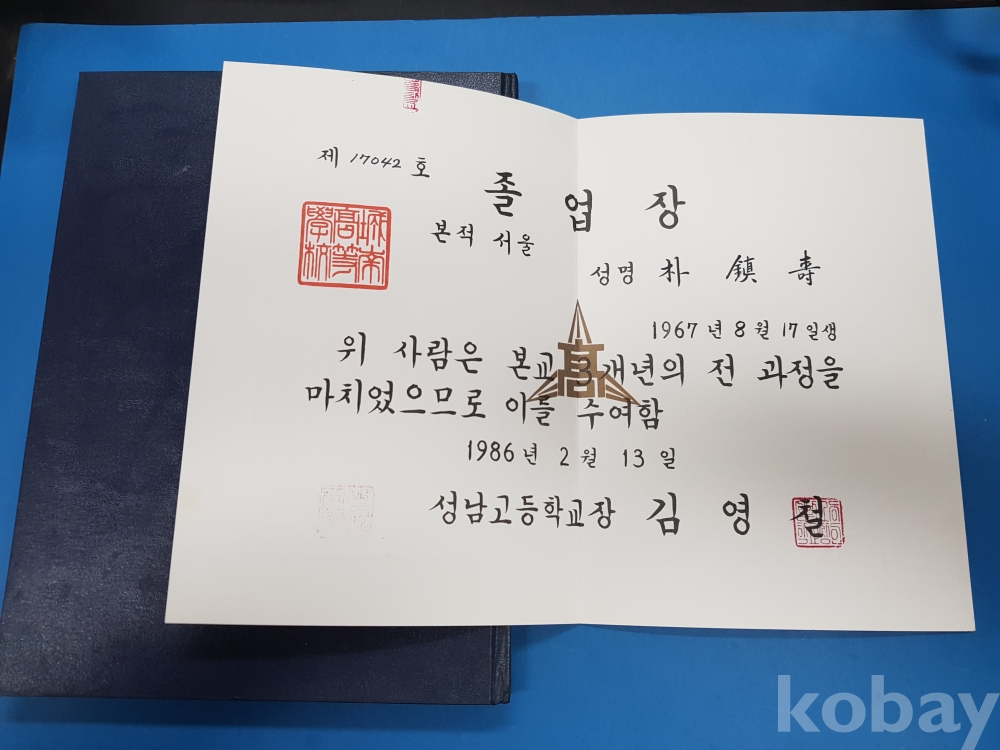 제 17042 호
졸 업 장
본적 서울
성명 朴 鎭 壽
1967 년 8 월 17 일생
위 사람은 본교 3개년의 전 과정을
마치었으므로 이를 수여함
1986 년 2 월 13 일
성남고등학교장 김 영 철
城南
高等
學校
kobay